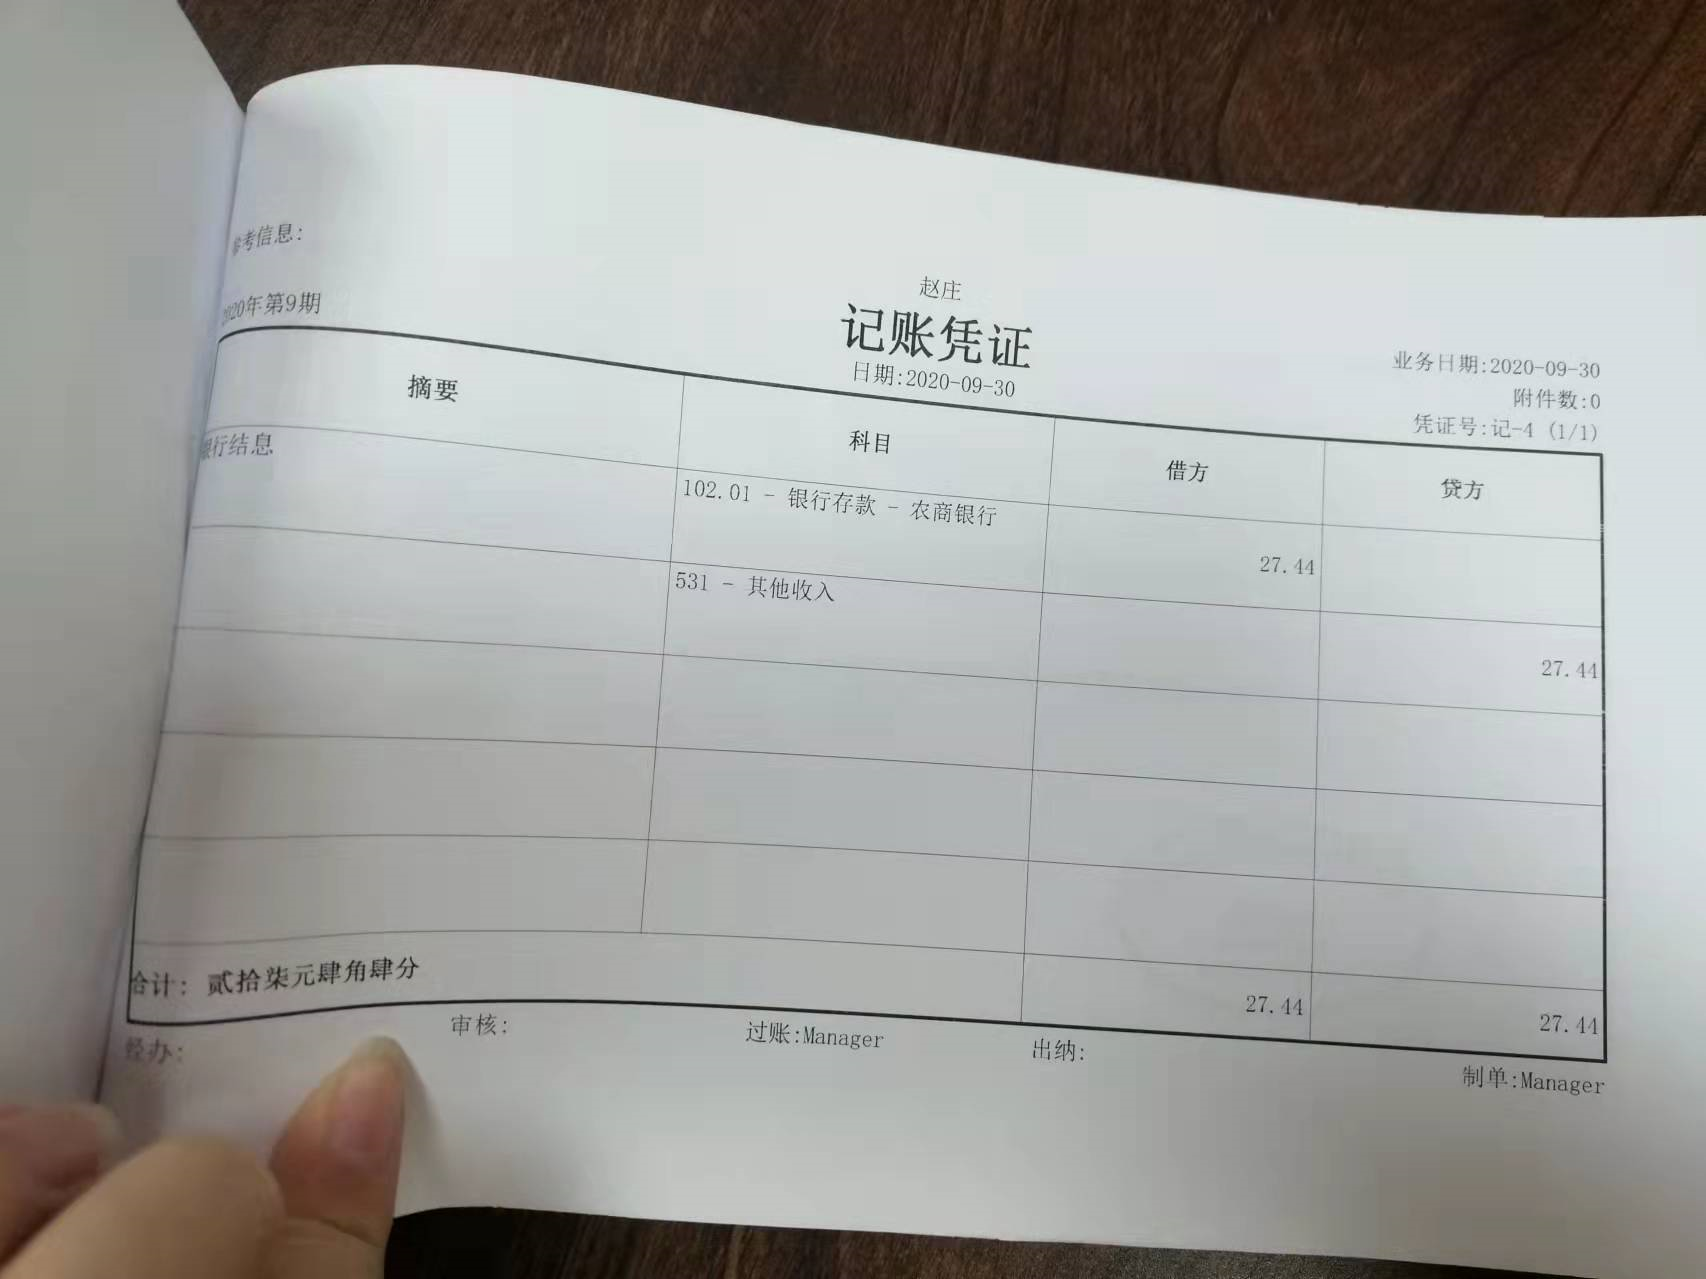 参考信息:
2020年第9期
赵庄
记账凭证
日期:2020-09-30
业务日期:2020-09-30
附件数:0
凭证号:记-4 (1/1)
摘要 科目 借方 贷方
银行结息 102.01 - 银行存款 - 农商银行 27.44
531 - 其他收入 27.44
合计: 贰拾柒元肆角肆分 27.44 27.44
经办: 审核: 过账:Manager 出纳: 制单:Manager